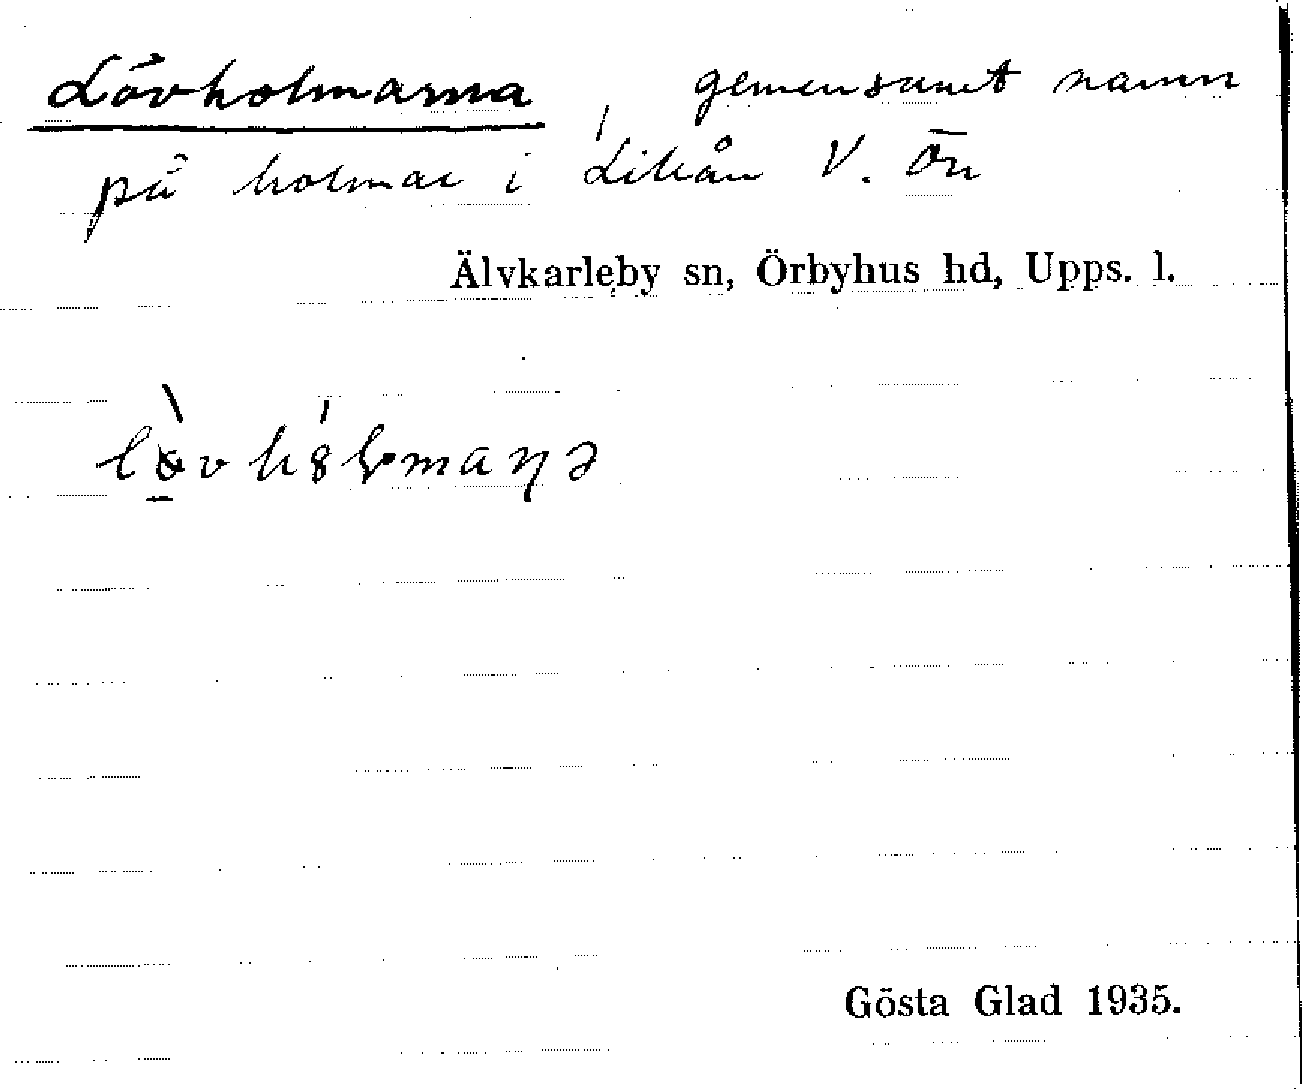 Lövholmarna, gemensamt namn
på holmar i Lillån V. Ön
Älvkarleby sn, Örbyhus hd, Upps. l.
Gösta Glad 1935.